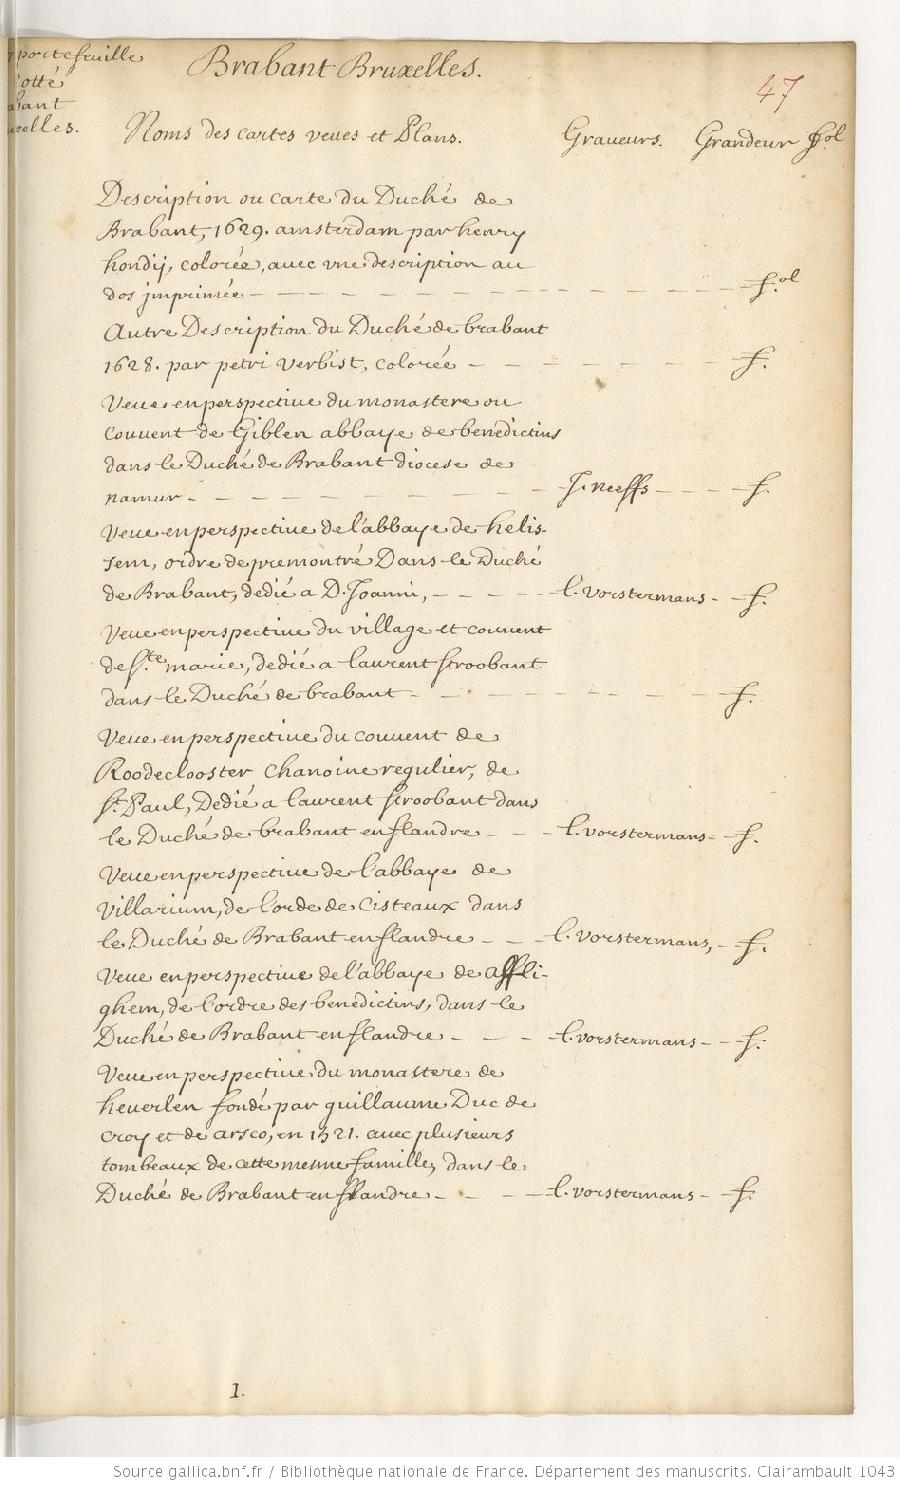 portefeuille
cotté
abant
uxelles.
Brabant Bruxelles.
47
Noms des cartes veues et Plans. Graueurs. Grandeur fol
Description ou carte du Duché de
Brabant, 1629. amsterdam par henry
hondij, colorée, auec vne description au
dos jmprimée - - - - - - - - - - - f.ol
Autre Description du Duché de brabant
1628. par petri verbist, colorée - - - - - - - f.
Veue en perspectiue du monastere ou
couuent de Giblen abbaye de benedictins
dans le Duché de Brabant diocese de
namur - - - - - - - - - J. neeffs - - - - f.
Veue en perspectiue de l'abbaye de helis-
sem, ordre de premontré Dans le Duché
de Brabant, dedié a D. Joanni, - - - - - l. vorstermans - - f.
Veue en perspectiue du village et couuent
de S.te marie, dedié a laurent stroobant
dans le Duché de brabant - - - - - - - - - f.
Veue en perspectiue du couuent de
Roodeclooster chanoine regulier, de
St. Paul, Dedié a laurent stroobant dans
le Duché de brabant en flandre - - - l. vorstermans - f.
Veue en perspectiue de l'abbaye de
Villarium, de l'orde de Cisteaux dans
le Duché de Brabant en flandre - - - l. vorstermans, - f.
Veue en perspectiue de l'abbaye de affli-
ghem, de l'ordre des benedictins, dans le
Duché de Brabant en flandre - - - - l. vorstermans - - f.
Veue en perspectiue du monastere de
heuerlen fondé par guillaume Duc de
croy et de arsco, en 1521. auec plusieurs
tombeaux de cette mesme famille, dans le
Duché de Brabant en flandre - - - - l. vorstermans - f.
1.
Source gallica.bnf.fr / Bibliothèque nationale de France. Département des manuscrits. Clairambault 1043